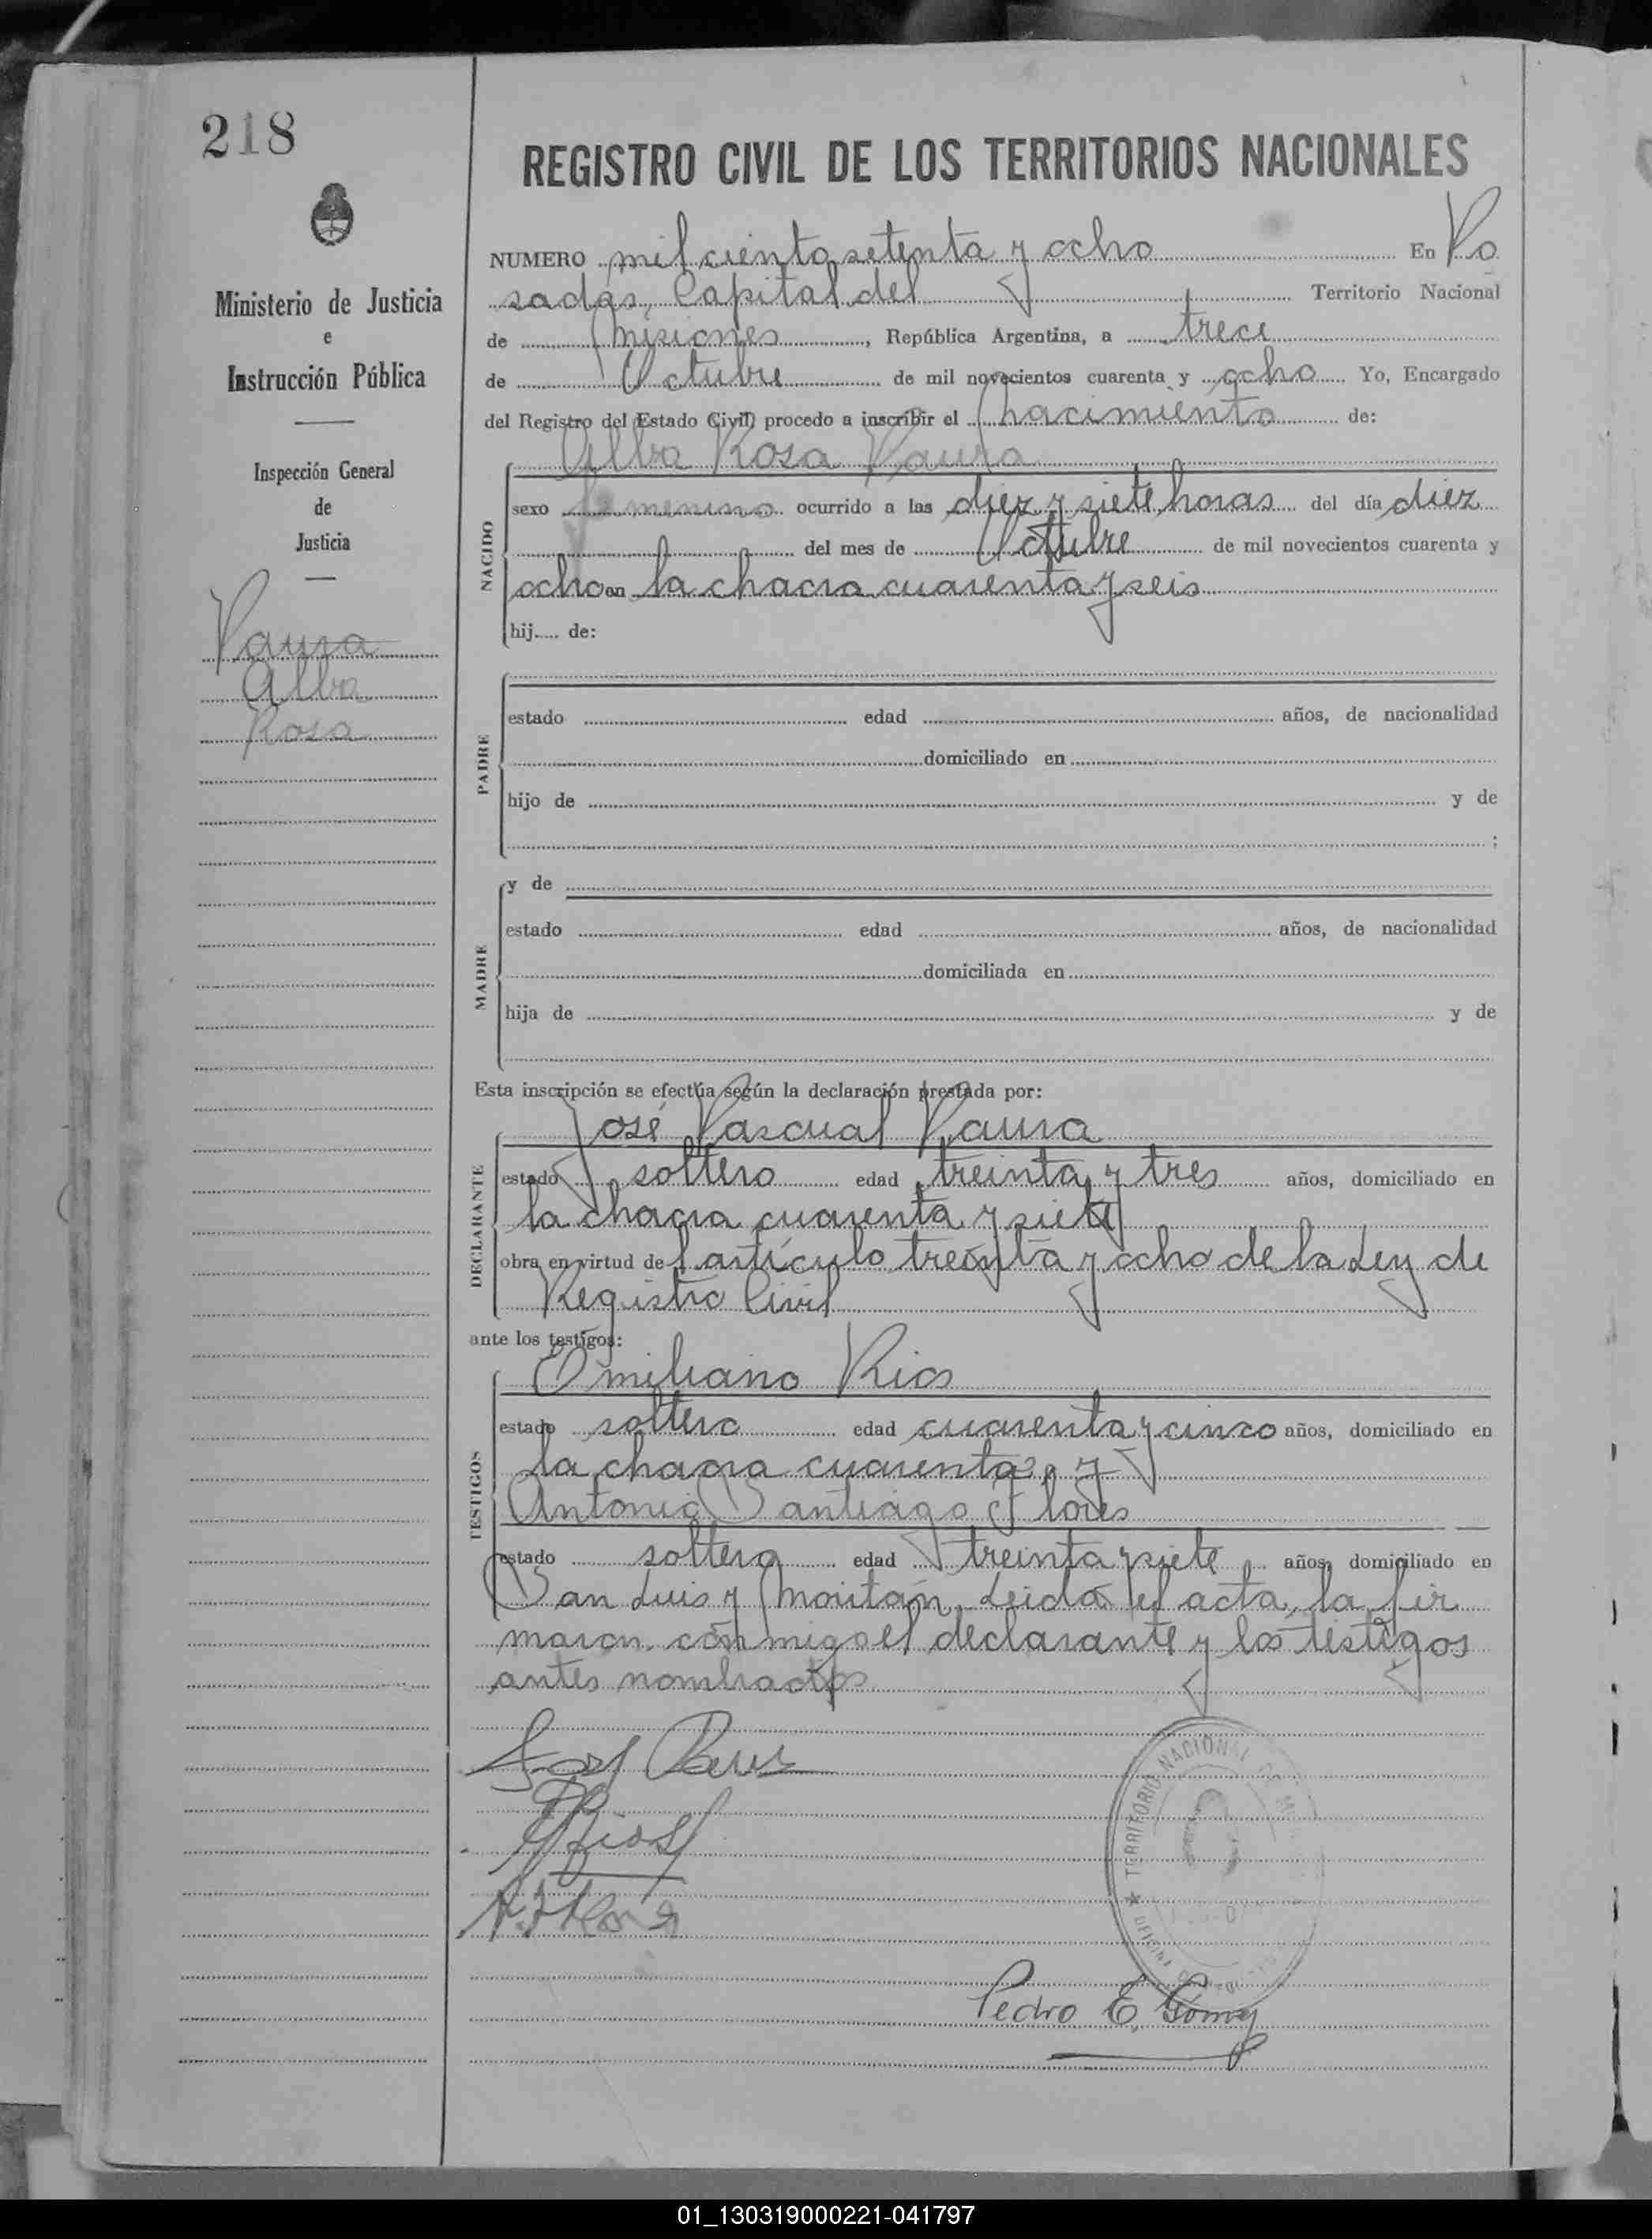 218
REGISTRO CIVIL DE LOS TERRITORIOS NACIONALES
Ministerio de Justicia
e
Instrucción Pública
Inspección General
de
Justicia
Alba
Rosa
NUMERO mil ciento setenta y ocho En Po
sadas, Capital del Territorio Nacional
de Misiones, República Argentina, a trece
de Octubre de mil novecientos cuarenta y ocho Yo, Encargado
del Registro del Estado Civil, procedo a inscribir el nacimiento de:
Alba Rosa
NACIDO
sexo femenino ocurrido a las diez y siete horas del día diez
del mes de Octubre de mil novecientos cuarenta y
ocho en la chacra cuarenta y seis
hij..... de:
PADRE
estado edad años, de nacionalidad
domiciliado en
hijo de y de
;
MADRE
y de
estado edad años, de nacionalidad
domiciliada en
hija de y de
Esta inscripción se efectúa según la declaración prestada por:
DECLARANTE
José Pascual
estado soltero edad treinta y tres años, domiciliado en
la chacra cuarenta y siete
obra en virtud del artículo treinta y ocho de la Ley de
Registro Civil
ante los testigos:
TESTIGOS
Emiliano Rios
estado soltero edad cuarenta y cinco años, domiciliado en
la chacra cuarenta, y
Antonio Santiago Flores
estado soltero edad treinta y siete años, domiciliado en
San Luis y Moritán. Leida el acta, la fir
maron conmigo el declarante y los testigos
antes nombrados
Pedro E. Gomez
TERRITORIO NACIONAL
01_130319000221-041797